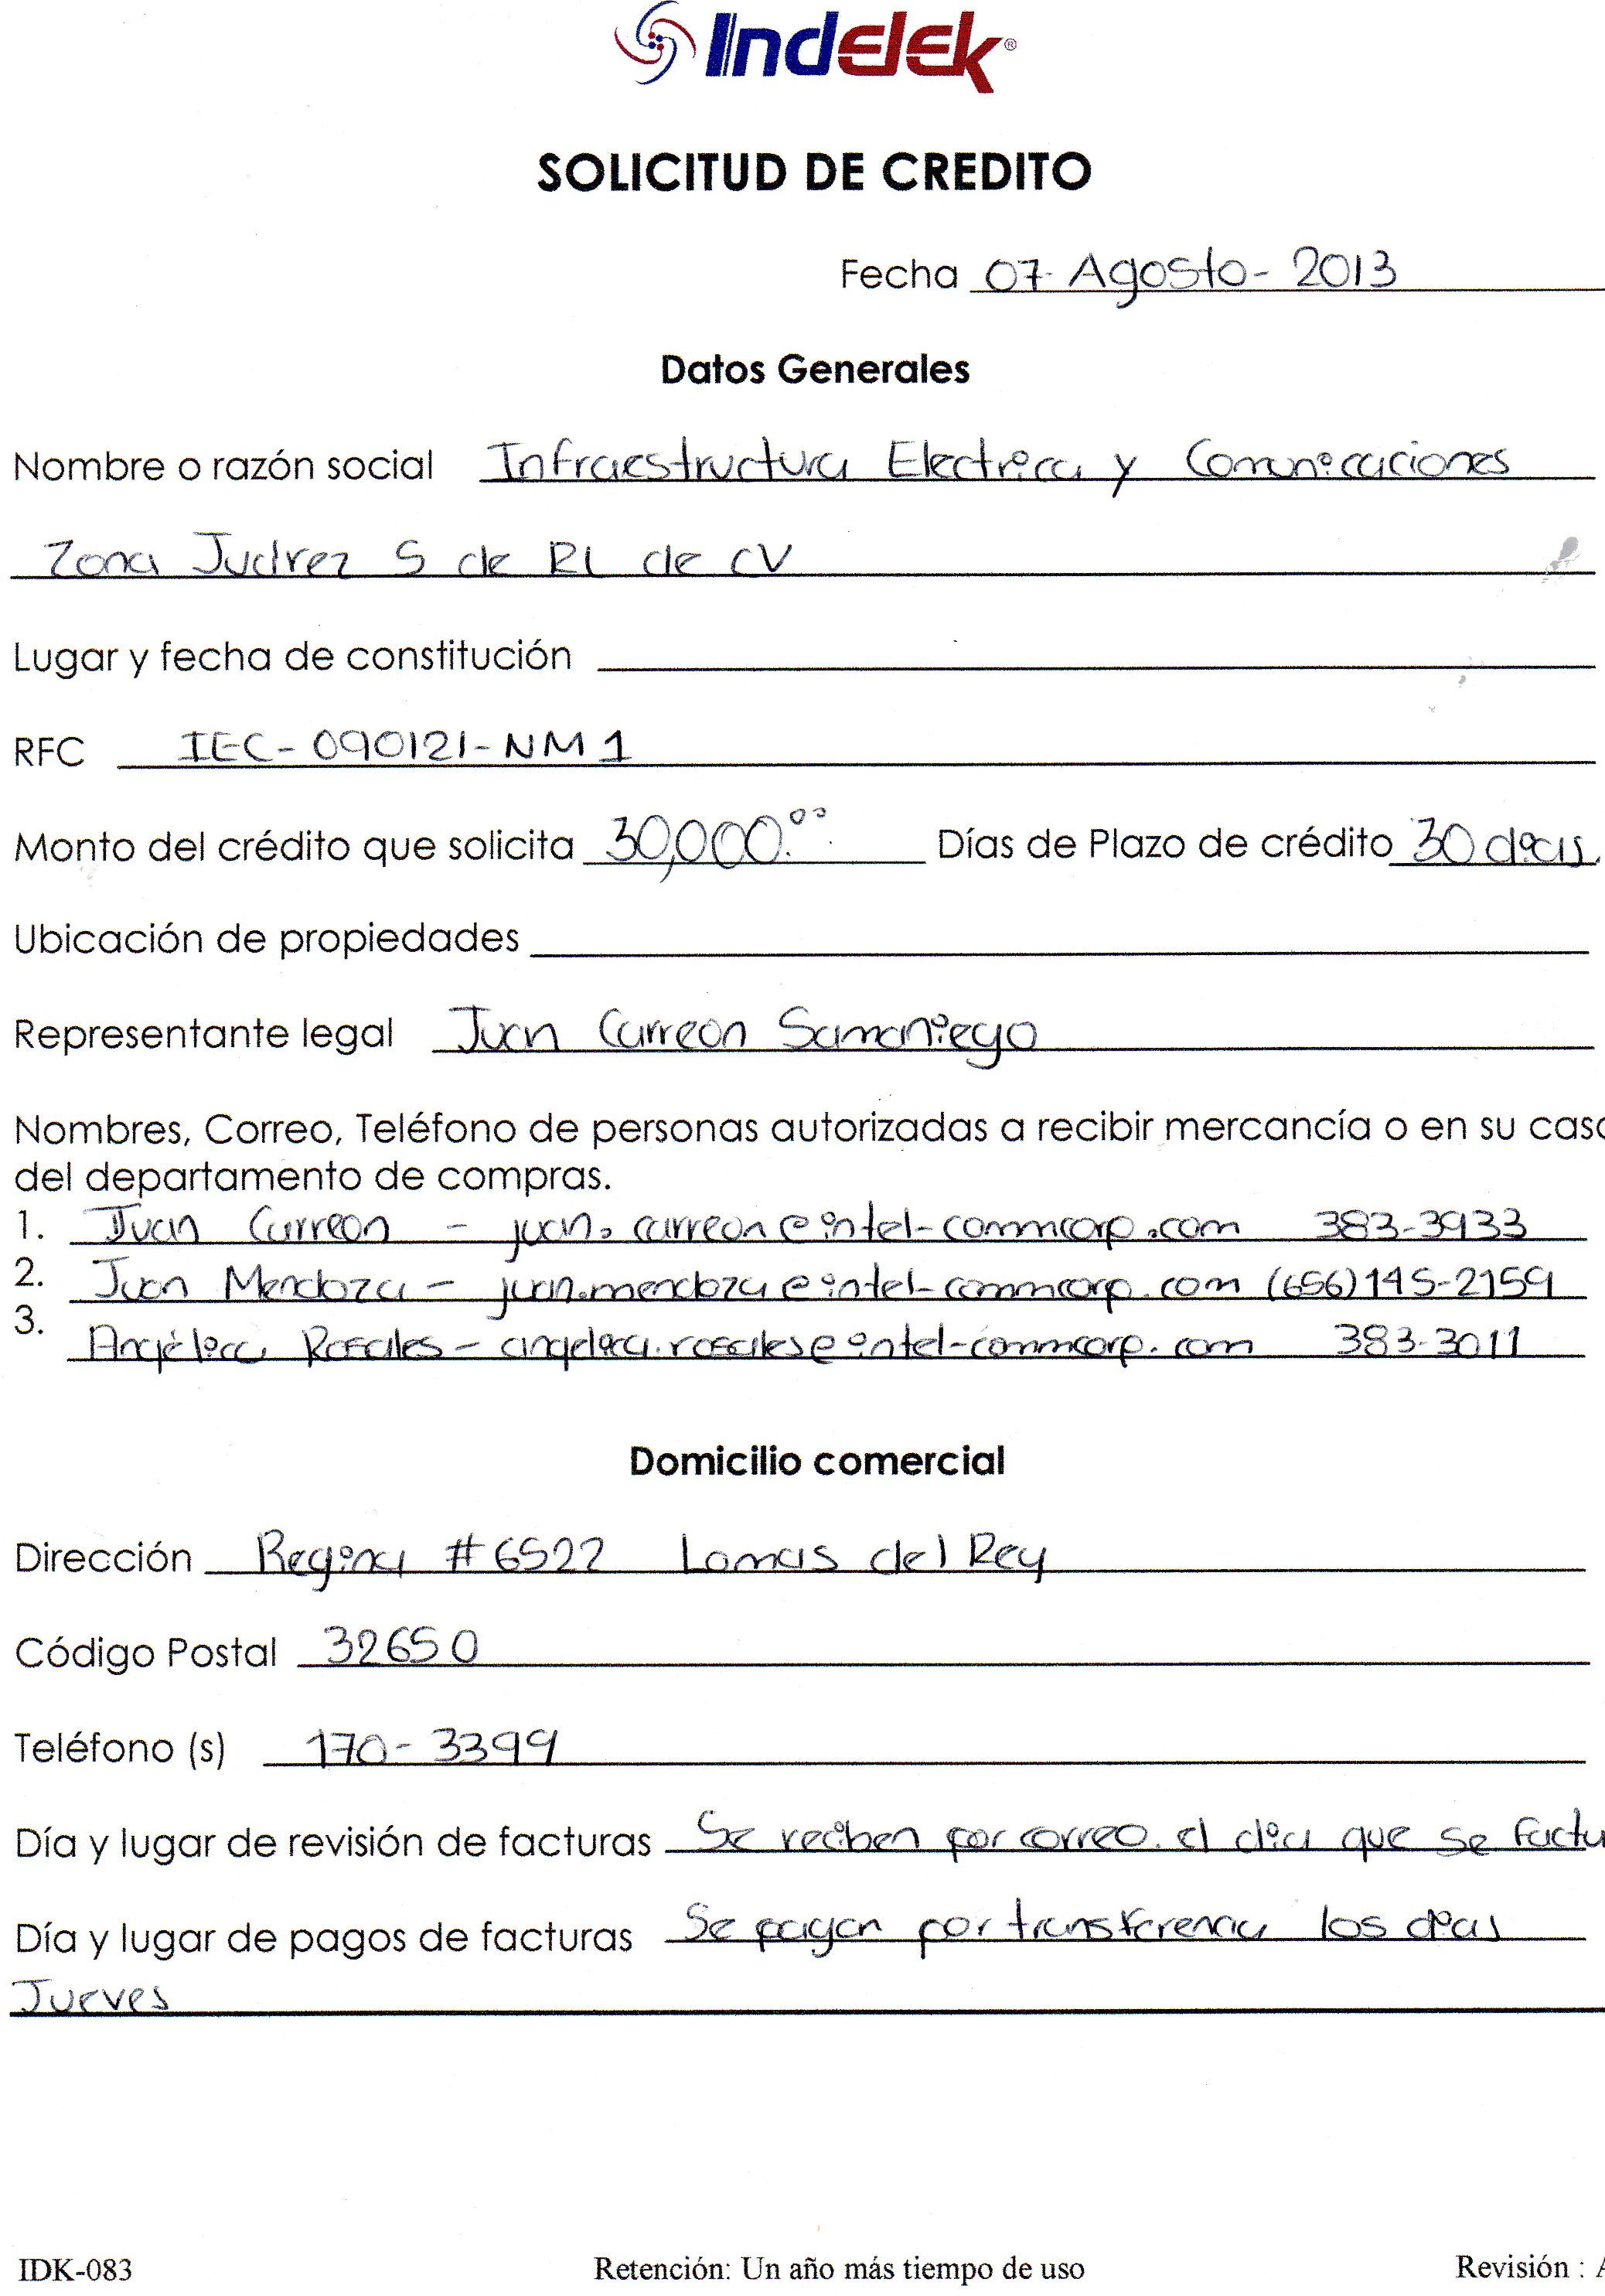 Indelek®
SOLICITUD DE CREDITO
Fecha 07-Agosto-2013
Datos Generales
Nombre o razón social Infraestructura Electrica y Comunicaciones
Zona Juárez S de RL de CV
Lugar y fecha de constitución
RFC IEC-090121-NM1
Monto del crédito que solicita 30,000.00 Días de Plazo de crédito 30 dias
Ubicación de propiedades
Representante legal Juan Carreon Samaniego
Nombres, Correo, Teléfono de personas autorizadas a recibir mercancía o en su caso
del departamento de compras.
1. Juan Carreon - juan.carreon@intel-commcorp.com 383-3933
2. Juan Mendoza - juan.mendoza@intel-commcorp.com (656)145-2159
3. Angélica Rosales - angelica.rosales@intel-commcorp.com 383-3011
Domicilio comercial
Dirección Regina #6522 Lomas del Rey
Código Postal 32650
Teléfono (s) 170-3399
Día y lugar de revisión de facturas Se reciben por correo. el dia que se factu
Día y lugar de pagos de facturas Se pagan por transferencia los dias
Jueves
IDK-083 Retención: Un año más tiempo de uso Revisión : A